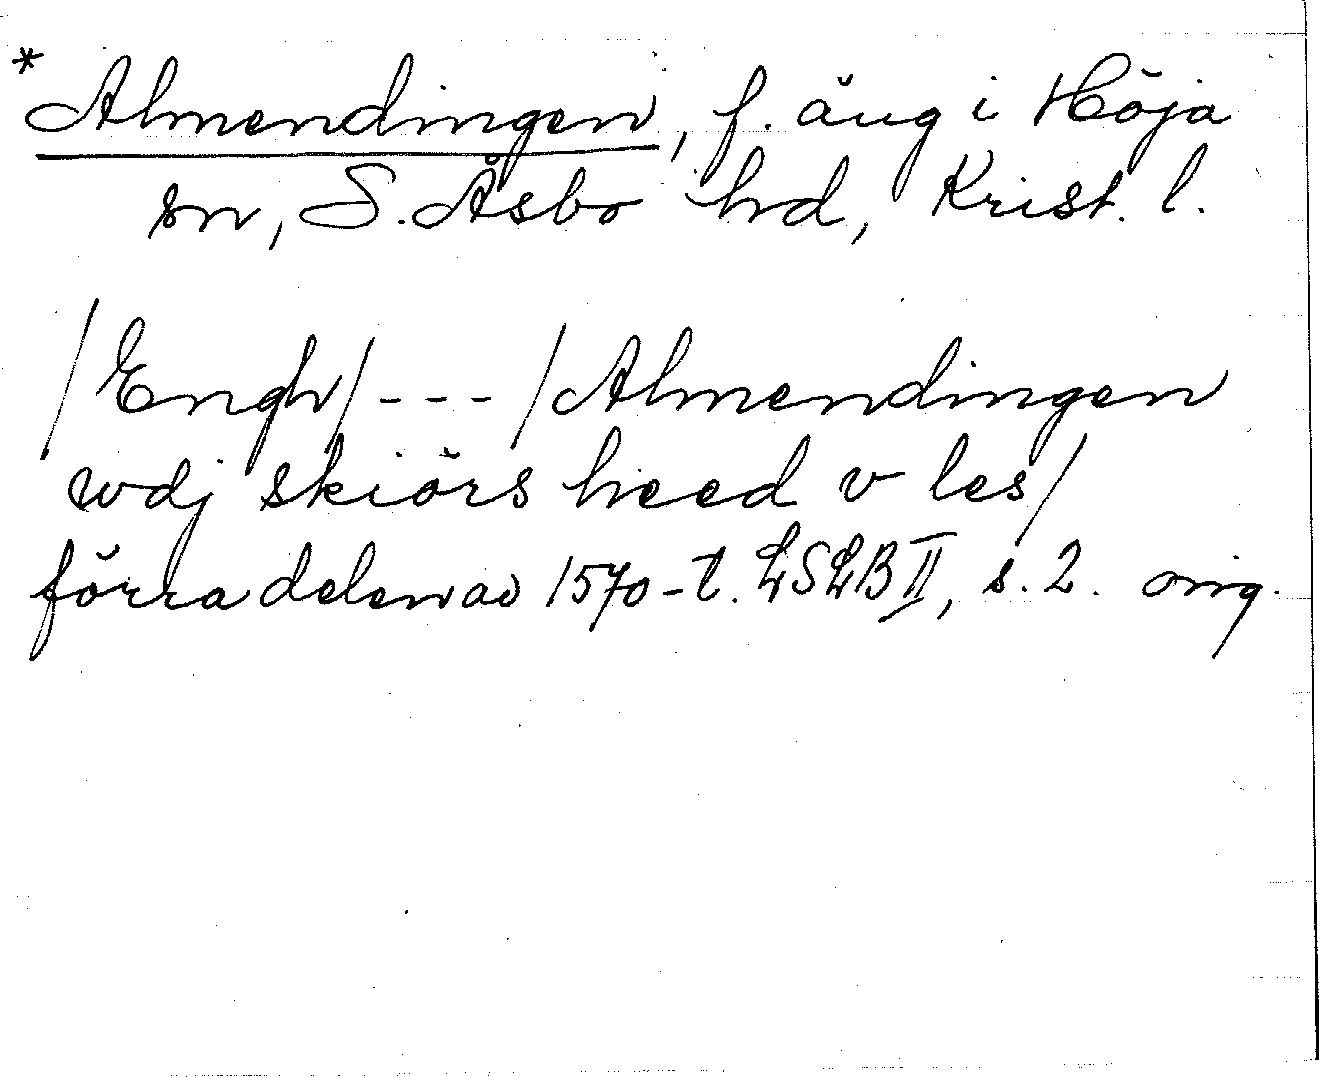 *Almendingen, f. äng i Höja
sn, S. Åsbo hd, Krist. l.
/Engh/ - - - /Almendingen
wdj skiörs heed v les/
förra delen av 1570-t. LSLB II, s. 2. orig.